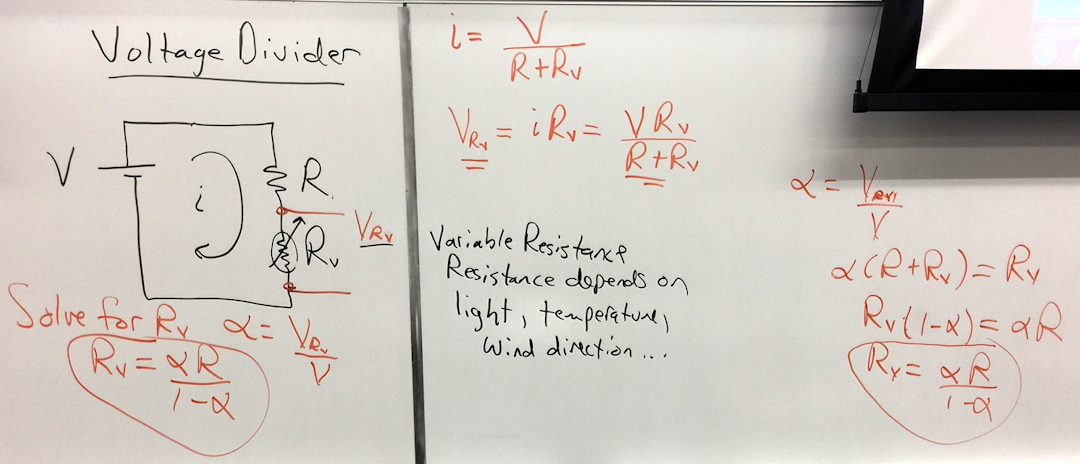 Voltage Divider
V
i
R
Rv
VRv
Solve for Rv α = VRv / V
Rv = αR / 1-α
i = V / R+Rv
VRv = i Rv = V Rv / R+Rv
Variable Resistance
Resistance depends on
light, temperature,
Wind direction...
α = / V
α(R+Rv) = Rv
Rv(1-α) = αR
Rv = αR / 1-α